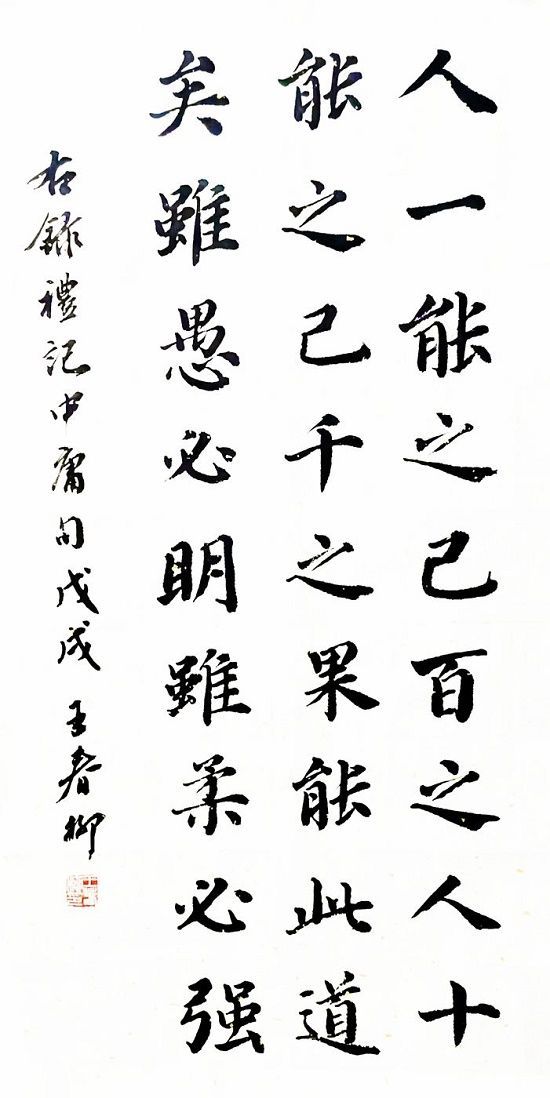 人一能之己百之人十
能之己千之果能此道
矣雖愚必明雖柔必强
右錄禮記中庸句戊戌王春柳